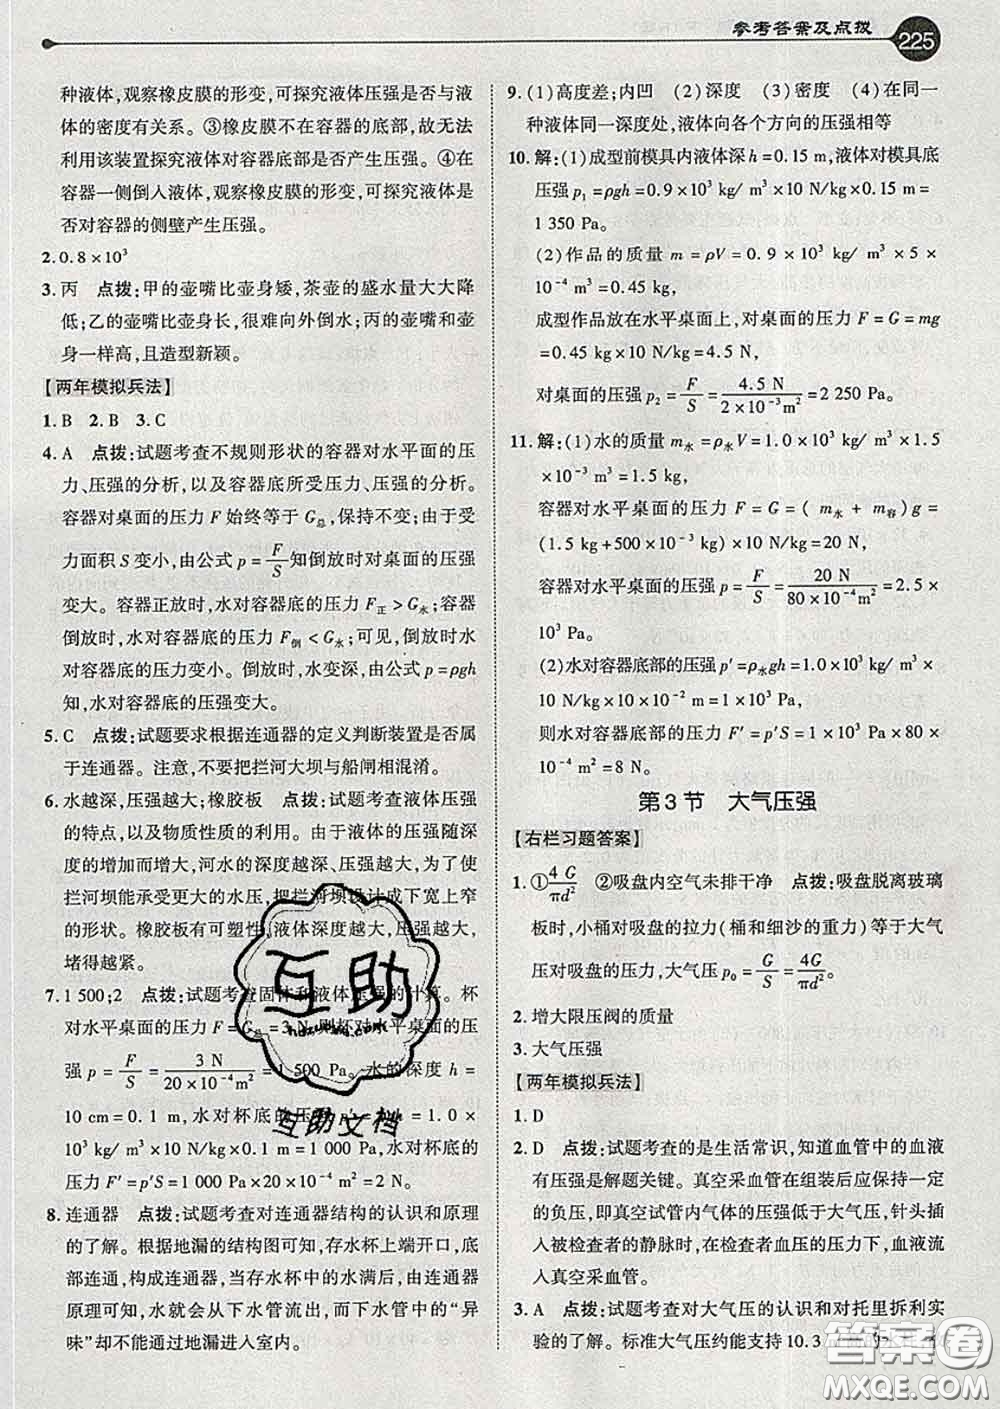 参考答案及点拨
225
种液体,观察橡皮膜的形变,可探究液体压强是否与液
体的密度有关系。③橡皮膜不在容器的底部,故无法
利用该装置探究液体对容器底部是否产生压强。④在
容器一侧倒入液体,观察橡皮膜的形变,可探究液体是
否对容器的侧壁产生压强。
2. 0.8×10³
3. 丙 点拨:甲的壶嘴比壶身矮,茶壶的盛水量大大降
低;乙的壶嘴比壶身长,很难向外倒水;丙的壶嘴和壶
身一样高,且造型新颖。
【两年模拟兵法】
1. B 2. B 3. C
4. A 点拨:试题考查不规则形状的容器对水平面的压
力、压强的分析,以及容器底所受压力、压强的分析。
容器对桌面的压力 F 始终等于 G总,保持不变;由于受
力面积 S 变小,由公式 p = F/S 知倒放时对桌面的压强
变大。容器正放时,水对容器底的压力 F正 > G水;容器
倒放时,水对容器底的压力 F倒 < G水;可见,倒放时水
对容器底的压力变小。倒放时,水变深,由公式 p = ρgh
知,水对容器底的压强变大。
5. C 点拨:试题要求根据连通器的定义判断装置是否属
于连通器。注意,不要把拦河大坝与船闸相混淆。
6. 水越深,压强越大;橡胶板 点拨:试题考查液体压强
的特点,以及物质性质的利用。由于液体的压强随深
度的增加而增大,河水的深度越深、压强越大,为了使
拦河坝能承受更大的水压,把拦河坝设计成下宽上窄
的形状。橡胶板有可塑性,液体深度越大,压强越大,
堵得越紧。
7. 1 500;2 点拨:试题考查固体和液体压强的计算。杯
对水平桌面的压力 F = G总 = 3 N,则杯对水平桌面的压
强 p = F/S = 3 N/(20×10⁻⁴ m²) = 1 500 Pa。水的深度 h =
10 cm = 0.1 m,水对杯底的压强 p′ = ρgh = 1.0 ×
10³ kg/m³ × 10 N/kg × 0.1 m = 1 000 Pa,水对杯底的
压力 F′ = p′S = 1 000 Pa×20×10⁻⁴ m² = 2 N。
8. 连通器 点拨:试题考查对连通器结构的认识和原理
的了解。根据地漏的结构图可知,存水杯上端开口,底
部连通,构成连通器,当存水杯中的水满后,由连通器
原理可知,水就会从下水管流出,而下水管中的“异
味”却不能通过地漏进入室内。
9. (1)高度差;内凹 (2)深度 (3)密度 (4)在同一
种液体同一深度处,液体向各个方向的压强相等
10. 解:(1)成型前模具内液体深 h = 0.15 m,液体对模具底
压强 p₁ = ρgh = 0.9×10³ kg/m³×10 N/kg×0.15 m =
1 350 Pa。
(2)作品的质量 m = ρV = 0.9 × 10³ kg/m³ × 5 ×
10⁻⁴ m³ = 0.45 kg,
成型作品放在水平桌面上,对桌面的压力 F = G = mg
= 0.45 kg×10 N/kg = 4.5 N,
对桌面的压强 p₂ = F/S = 4.5 N/(2×10⁻³ m²) = 2 250 Pa。
11. 解:(1)水的质量 m水 = ρ水V = 1.0×10³ kg/m³×1.5
×10⁻³ m³ = 1.5 kg,
容器对水平桌面的压力 F = G = ( m水 + m容)g =
(1.5 kg+500×10⁻³ kg)×10 N/kg = 20 N,
容器对水平桌面的压强 p = F/S = 20 N/(80×10⁻⁴ m²) = 2.5 ×
10³ Pa。
(2)水对容器底部的压强 p′ = ρ水gh = 1.0×10³ kg/m³ ×
10 N/kg×10×10⁻² m = 1×10³ Pa,
则水对容器底部的压力 F′ = p′S = 1×10³ Pa×80×
10⁻⁴ m² = 8 N。
第 3 节 大气压强
【右栏习题答案】
1. ①4G/πd² ②吸盘内空气未排干净 点拨:吸盘脱离玻璃
板时,小桶对吸盘的拉力(桶和细沙的重力)等于大气
压对吸盘的压力,大气压 p₀ = G/S = 4G/πd²。
2. 增大限压阀的质量
3. 大气压强
【两年模拟兵法】
1. D
2. D 点拨:试题考查的是生活常识,知道血管中的血液
有压强是解题关键。真空采血管在组装后应有一定的
负压,即真空试管内气体的压强低于大气压,针头插入
被检查者的静脉时,在大气压和血压的压力下,血液流入
真空采血管。
3. A 点拨:试题考查对大气压的认识和对托里拆利实
验的了解。标准大气压约能支持 10.3
互助
hdzuowen.com
互助文档
答案圈
MXQE.COM